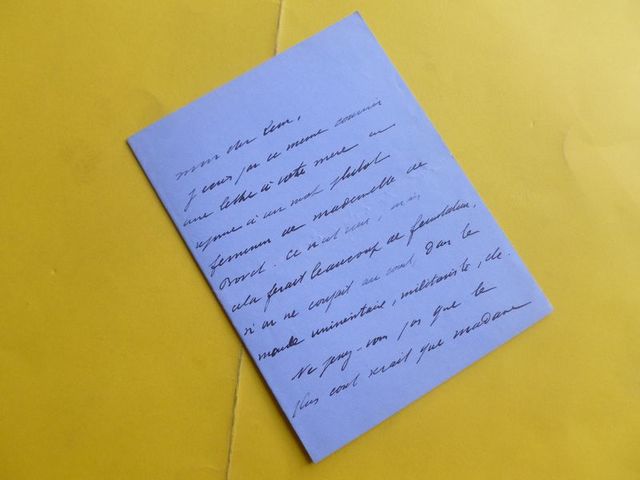 mon cher Leon,
j'envoie par ce même courrier
une lettre à votre mère en
réponse à un mot plutôt
de mademoiselle de
ce n'est rien, mais
cela ferait beaucoup de
si on ne coupait au court, dans le
monde universitaire, militariste, etc.
Ne pensez-vous pas que le
plus court serait que madame